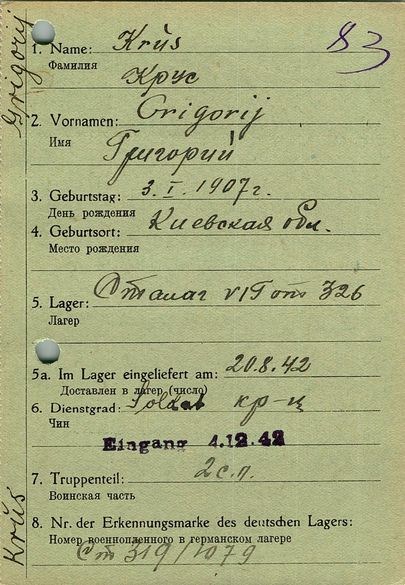 Grigorij
83
1. Name: Krŭs
Фамилия
Крус
2. Vornamen: Grigorij
Имя
Григорий
3. Geburtstag: 3. I. 1907 г.
День рождения
4. Geburtsort: Киевская обл.
Место рождения
5. Lager: Сталаг VI 326
Лагер
5a. Im Lager eingeliefert am: 20.8.42
Доставлен в лагер (число)
6. Dienstgrad: Soldat кр-ц
Чин
Eingang 4.12.42
7. Truppenteil: 2 с.п.
Воинская часть
8. Nr. der Erkennungsmarke des deutschen Lagers:
Номер военнопленного в германском лагере
Ст 319/1079
Krŭs